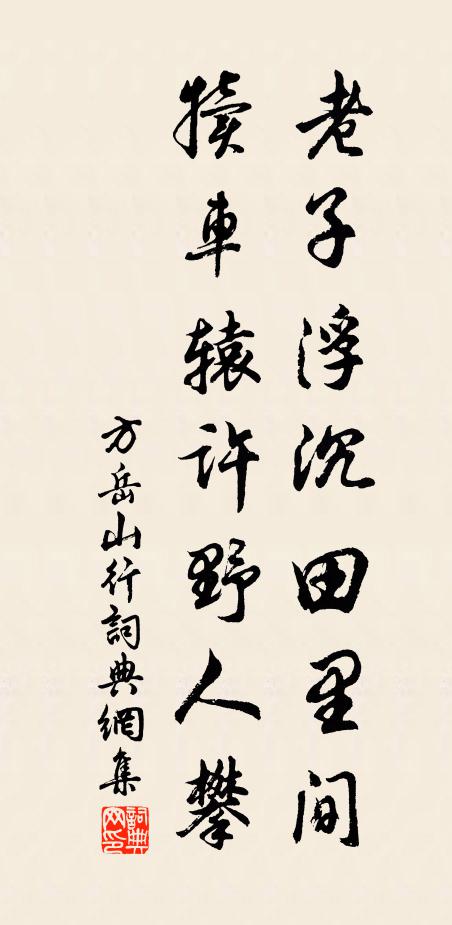 老子浮沉田里间
犊車辕许野人攀
方岳山行詞典網集
詞典网印